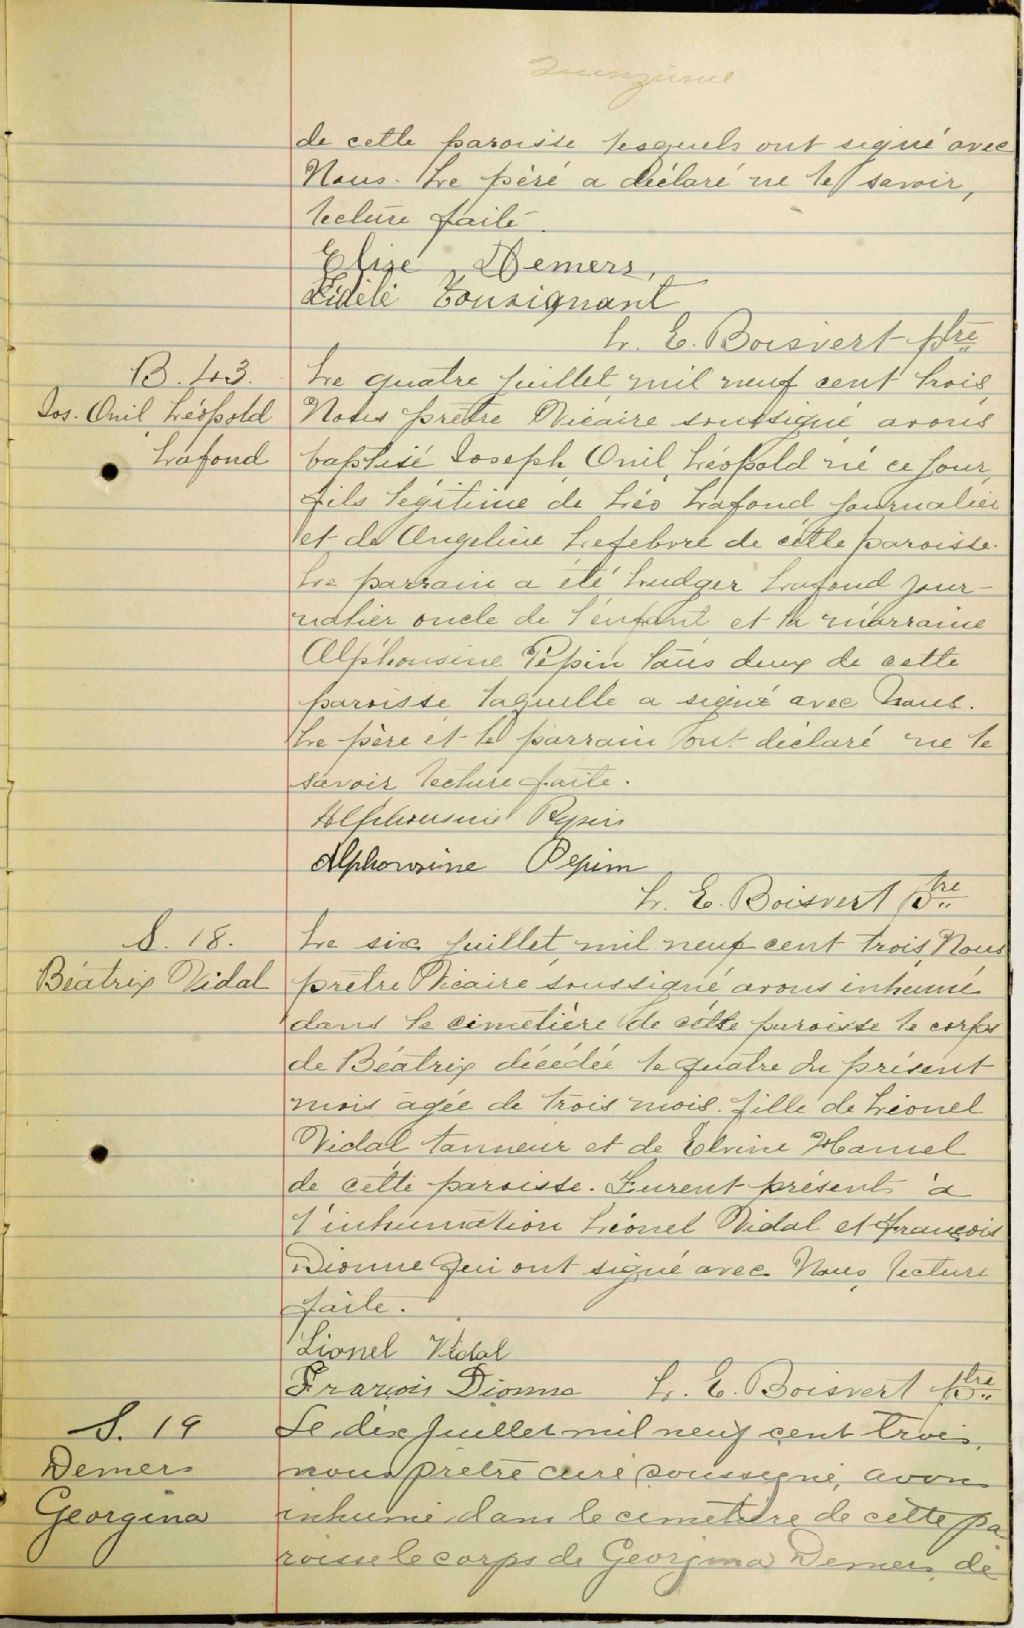 Quinzième
de cette paroisse lesquels ont signé avec
Nous. Le père a déclaré ne le savoir,
lecture faite.
Elise Demers,
Fidèle Tousignant
L. E. Boisvert ptre
B. 43. Le quatre juillet mil neuf cent trois,
Jos. Onil Léopold Nous prêtre Vicaire soussigné avons
Lafond baptisé Joseph Onil Léopold né ce jour,
fils légitime de Léo Lafond journalier
et de Angeline Lefebvre de cette paroisse.
Le parrain a été Ludger Lafond jour-
nalier oncle de l'enfant et la marraine
Alphonsine Pépin tous deux de cette
paroisse laquelle a signé avec Nous.
Le père et le parrain ont déclaré ne le
savoir lecture faite.
Alphonsine Pepin
Alphonsine Pepin
L. E. Boisvert ptre
S. 18. Le six juillet mil neuf cent trois, Nous
Béatrix Vidal prêtre Vicaire soussigné avons inhumé
dans le cimetière de cette paroisse le corps
de Béatrix décédée le quatre du présent
mois agée de trois mois. fille de Lionel
Vidal tanneur et de Elvine Hamel
de cette paroisse. Furent présents à
l'inhumation Lionel Vidal et François
Dionne qui ont signé avec Nous, lecture
faite.
Lionel Vidal
François Dionne L. E. Boisvert ptre
S. 19 Le dix juillet mil neuf cent trois,
Demers nous prêtre curé soussigné, avons
Georgina inhumé dans le cimetière de cette pa-
roisse le corps de Georgina Demers, de